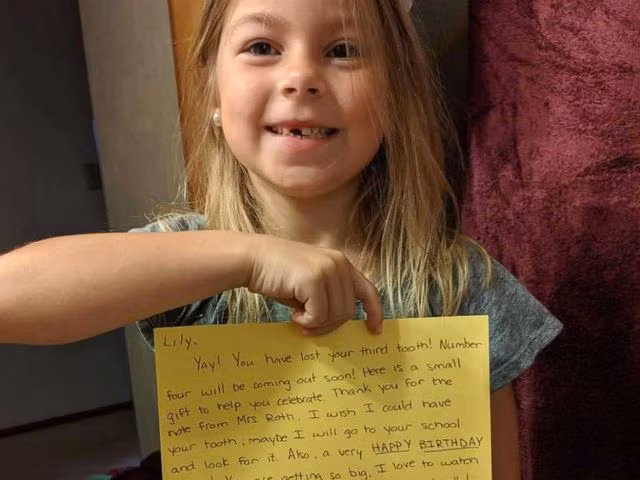 Lily,
Yay! You have lost your third tooth! Number
four will be coming out soon! Here is a small
gift to help you celebrate. Thank you for the
note from Mrs. Roth. I wish I could have
your tooth, maybe I will go to your school
and look for it. Also, a very HAPPY BIRTHDAY
getting so big, I love to watch